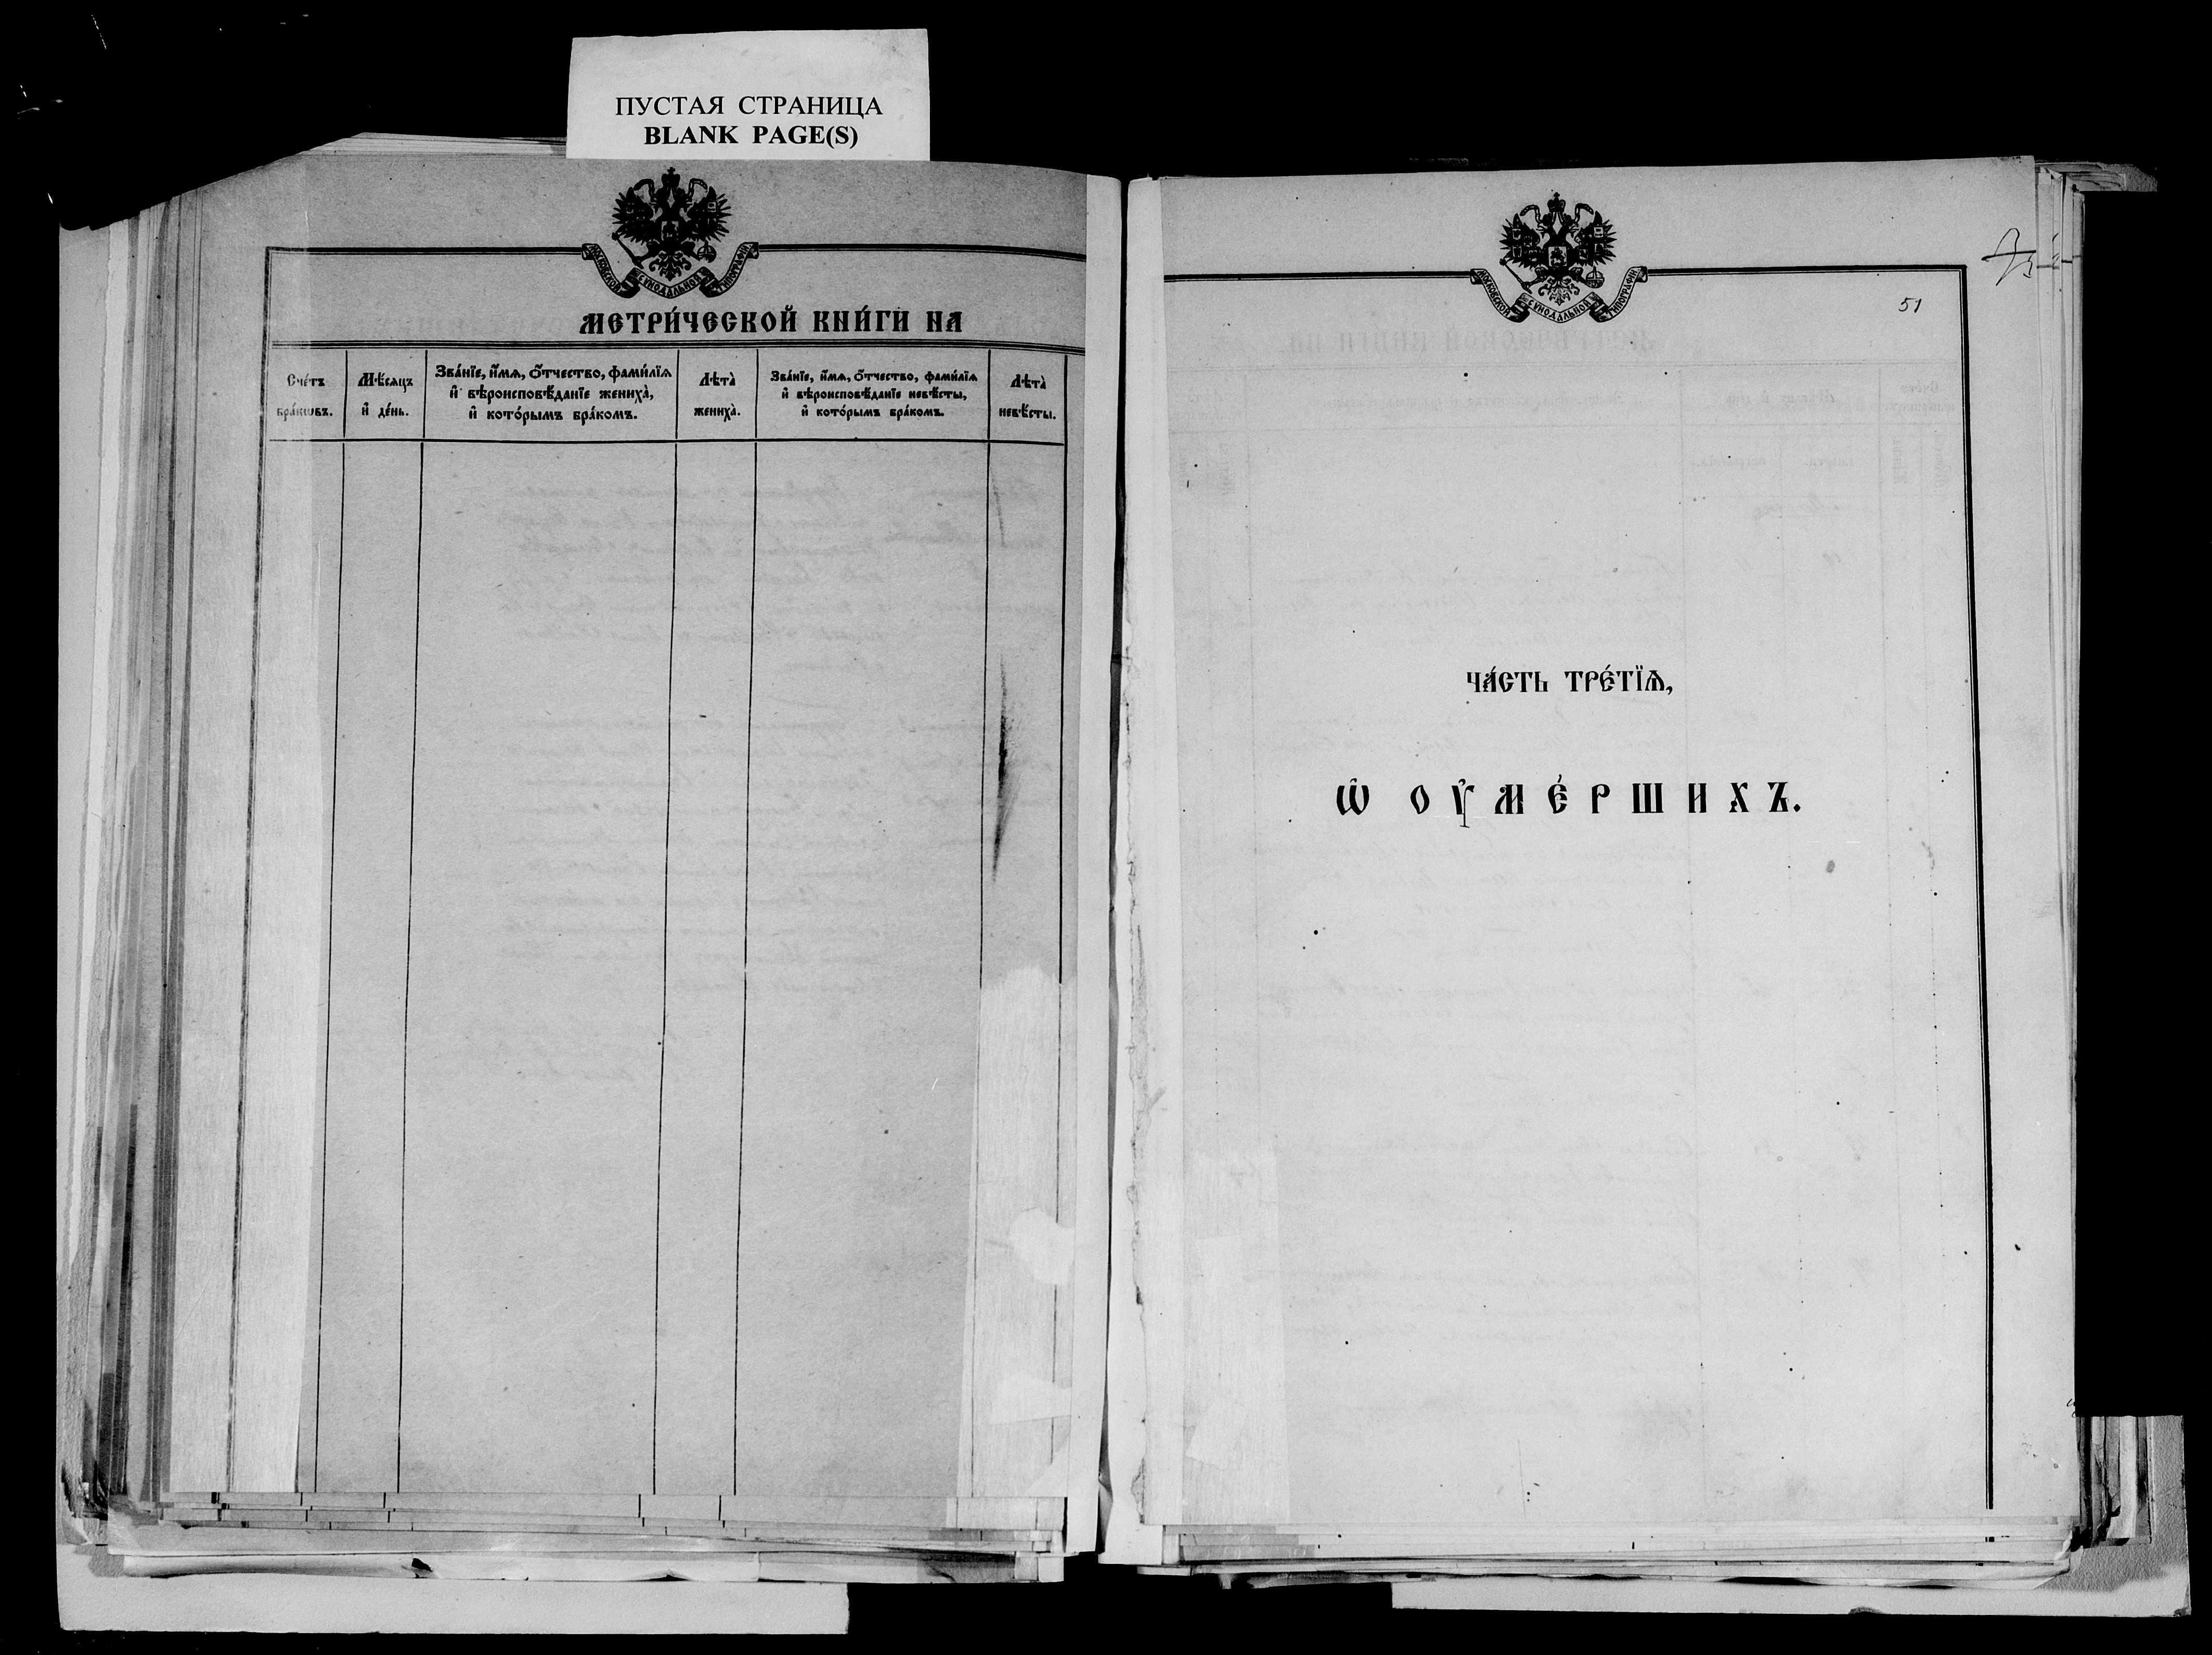 ПУСТАЯ СТРАНИЦА
BLANK PAGE(S)
МОСКОВСКОЙ СѴНОДАЛЬНОЙ ТИПОГРАФІИ
МЕТРИ́ЧЕСКОЙ КНИ́ГИ НА
Сче́тъ бра́кѡвъ.
Мѣ́сяцъ и҆ де́нь.
Зва́нїе, и҆́мѧ, ѻ҆́тчество, фами́лїѧ
и҆ вѣроисповѣ́данїе жениха̀,
и҆ кото́рымъ бра́комъ.
Лѣта̀ жениха̀.
Зва́нїе, и҆́мѧ, ѻ҆́тчество, фами́лїѧ
и҆ вѣроисповѣ́данїе невѣ́сты,
и҆ кото́рымъ бра́комъ.
Лѣта̀ невѣ́сты.
МОСКОВСКОЙ СѴНОДАЛЬНОЙ ТИПОГРАФІИ
51
ЧА́СТЬ ТРЕ́ТЇѦ,
Ѡ҆ ОУ҆МЕ́РШИХЪ.